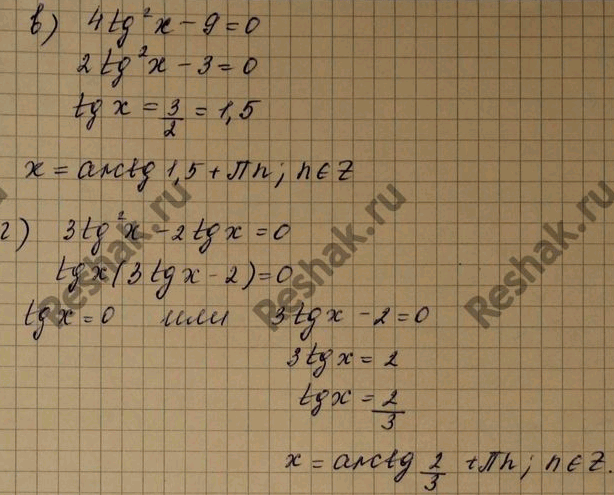 в) 4tg²x - 9 = 0
2tg²x - 3 = 0
tgx = 3/2 = 1,5
x = arctg 1,5 + Πn; n ∈ Z
г) 3tg²x - 2tgx = 0
tgx(3tgx - 2) = 0
tgx = 0 или 3tgx - 2 = 0
3tgx = 2
tgx = 2/3
x = arctg 2/3 + Πn; n ∈ Z.
Reshak.ru
Reshak.ru
Reshak.ru